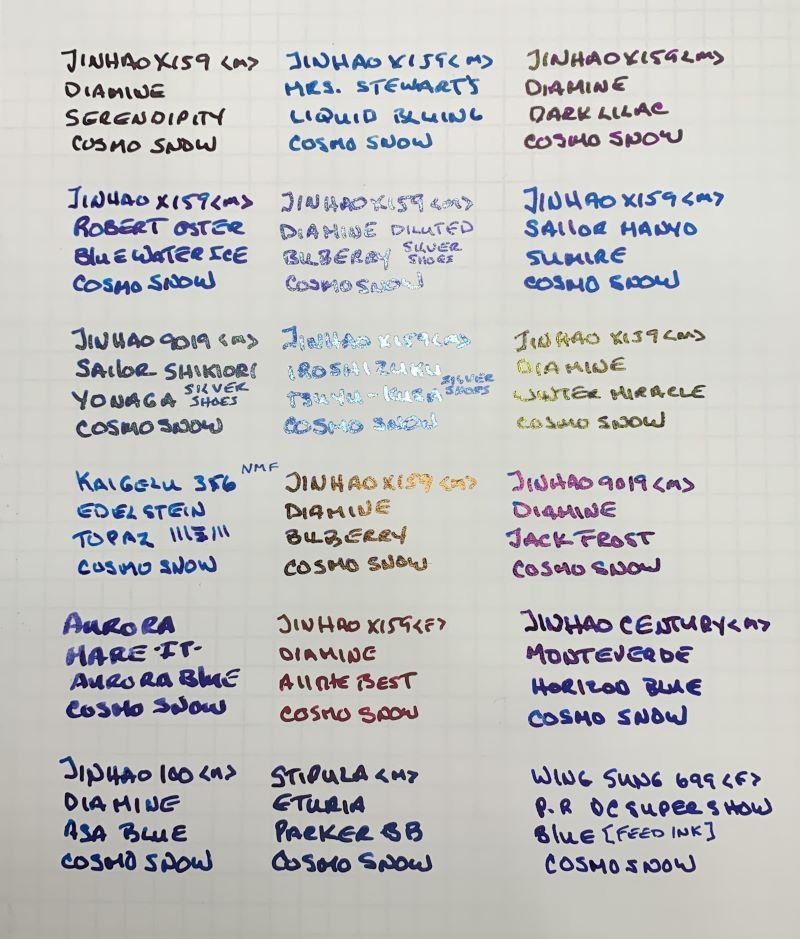 JINHAO X159 <M>
DIAMINE
SERENDIPITY
COSMO SNOW
JINHAO X159 <M>
MRS. STEWART'S
LIQUID BLUING
COSMO SNOW
JINHAO X159 <M>
DIAMINE
DARK LILAC
COSMO SNOW
JINHAO X159 <M>
ROBERT OSTER
BLUE WATER ICE
COSMO SNOW
JINHAO X159 <M>
DIAMINE DILUTED
BILBERRY SILVER SHOES
COSMO SNOW
JINHAO X159 <M>
SAILOR MANYO
SUMIRE
COSMO SNOW
JINHAO 9019 <M>
SAILOR SHIKIORI
YONAGA SILVER SHOES
COSMO SNOW
JINHAO X159 <M>
IROSHIZUKU
TSUYU-KUSA SILVER SHOES
COSMO SNOW
JINHAO X159 <M>
DIAMINE
WINTER MIRACLE
COSMO SNOW
KAIGELU 356 NMF
EDELSTEIN
TOPAZ
COSMO SNOW
JINHAO X159 <M>
DIAMINE
BILBERRY
COSMO SNOW
JINHAO 9019 <M>
DIAMINE
JACK FROST
COSMO SNOW
AURORA
HARE-IT-
AURORA BLUE
COSMO SNOW
JINHAO X159 <F>
DIAMINE
ALL THE BEST
COSMO SNOW
JINHAO CENTURY <M>
MONTEVERDE
HORIZOD BLUE
COSMO SNOW
JINHAO 100 <M>
DIAMINE
ASA BLUE
COSMO SNOW
STIPULA <M>
ETURIA
PARKER BB
COSMO SNOW
WING SUNG 699 <F>
P.R DC SUPER SHOW
BLUE [FEED INK]
COSMO SNOW